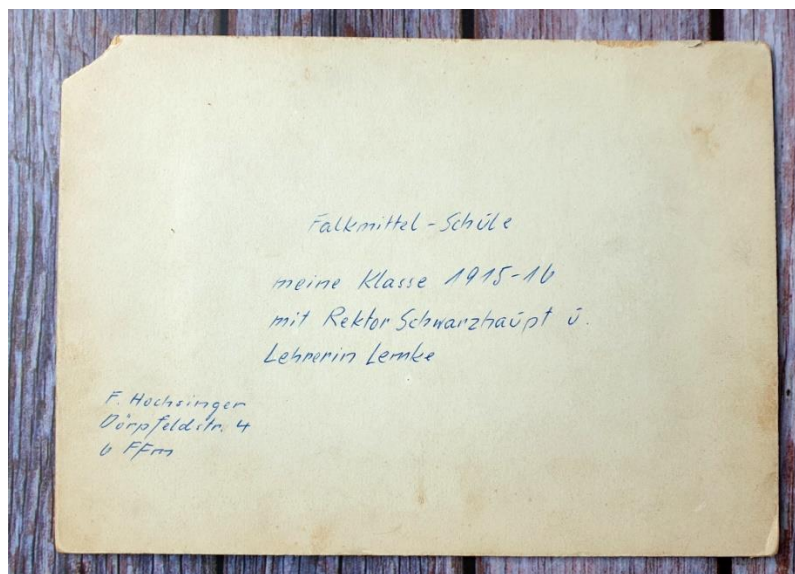 Falkmittel-Schule
meine Klasse 1915-16
mit Rektor Schwarzhaupt u.
Lehrerin Lemke
F. Hochsinger
Dörpfeldstr. 4
6 FFm